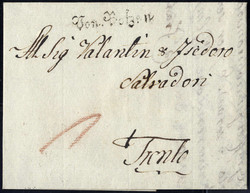 Von Botzen
All Sig Valantin & Isedoro
Salvadori
Trento